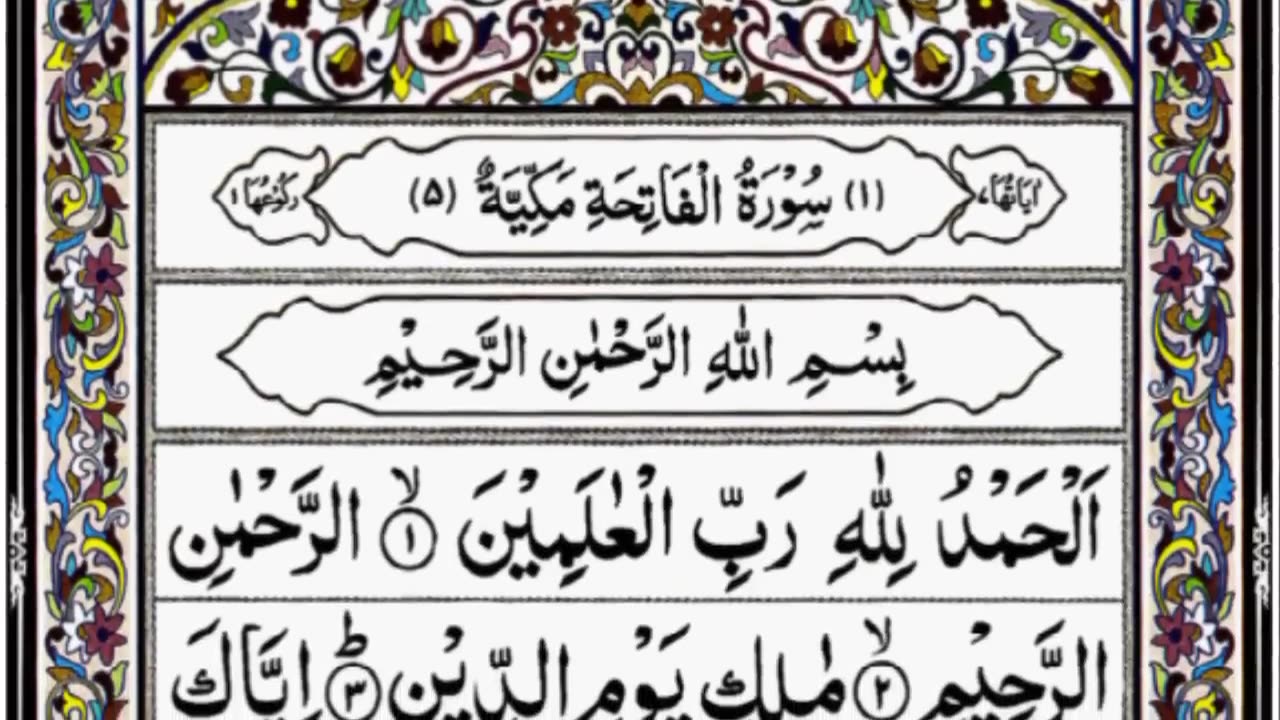 اٰيَاتُهَا ٧ (١) سُوْرَةُ الْفَاتِحَةِ مَكِّيَّةٌ (٥) رُكُوْعُهَا ١
بِسْمِ اللّٰهِ الرَّحْمٰنِ الرَّحِيْمِ
اَلْحَمْدُ لِلّٰهِ رَبِّ الْعٰلَمِيْنَ ۙ﴿١﴾ الرَّحْمٰنِ
الرَّحِيْمِ ۙ﴿٢﴾ مٰلِكِ يَوْمِ الدِّيْنِ ؕ﴿٣﴾ اِيَّاكَ